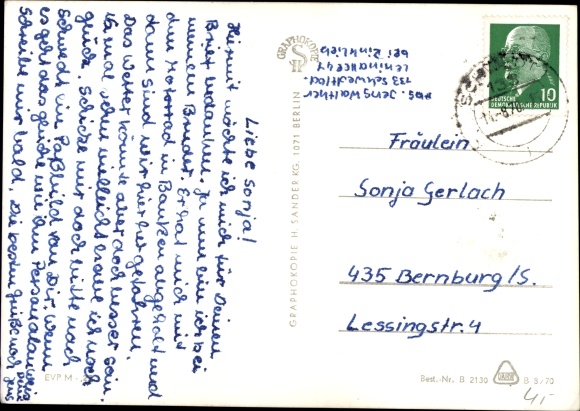 Liebe Sonja!
Hiermit möchte ich mich für Deinen
Brief bedanken. Ja nun bin ich bei
meinem Bruder. Er hat mich mit
dem Motorrad in Bautzen abgeholt und
dann sind wir hierher gefahren.
Das Wetter könnte aber doch besser sein.
Na mal sehen vielleicht habe ich noch
glück. Schicke mir doch bitte nach
Schwedt ein Paßbild von Dir, wenn
es geht das gleiche wie im Personalausweis
Schreibe mir bald. Die besten Grüße
Dein
Jens
EVP M
GRAPHOKOPIE
HS
Abs. Jens Walther
133 Schwedt/Od.
Leninallee 47
bei Zinklieb
GRAPHOKOPIE H. SANDER KG, 1071 BERLIN
DEUTSCHE
DEMOKRATISCHE REPUBLIK
10
Fräulein
Sonja Gerlach
435 Bernburg/S.
Lessingstr. 4
Best.-Nr. B 2130
B 8/70
4,-